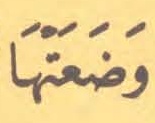 وَضَعَتْهَا